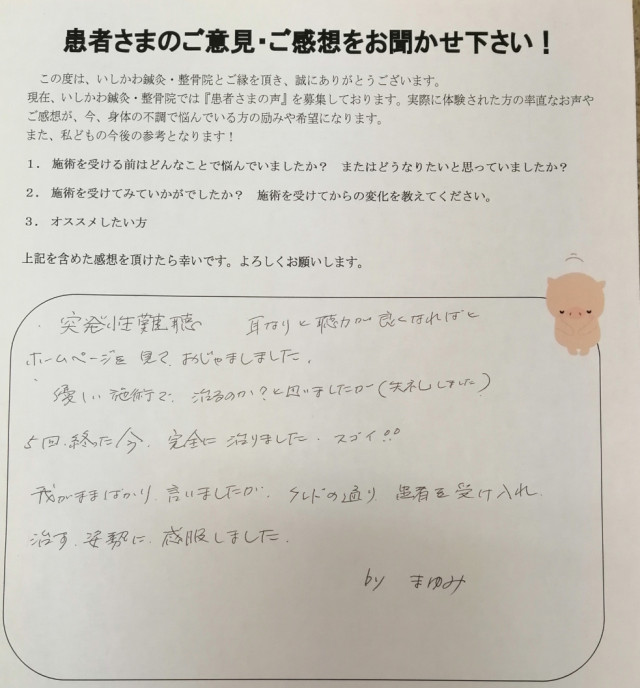 患者さまのご意見・ご感想をお聞かせ下さい！
この度は、いしかわ鍼灸・整骨院とご縁を頂き、誠にありがとうございます。
現在、いしかわ鍼灸・整骨院では『患者さまの声』を募集しております。実際に体験された方の率直なお声や
ご感想が、今、身体の不調で悩んでいる方の励みや希望になります。
また、私どもの今後の参考となります！
1． 施術を受ける前はどんなことで悩んでいましたか？　またはどうなりたいと思っていましたか？
2． 施術を受けてみていかがでしたか？　施術を受けてからの変化を教えてください。
3． オススメしたい方
上記を含めた感想を頂けたら幸いです。よろしくお願いします。
・突発性難聴の　耳なりと聴力が良くなればと
ホームページを見て、おじゃましました。
優しい施術で、治るのか？と思いましたが（失礼しました）
5回、終った今、完全に治りました。スゴイ!!
我がままばかり、言いましたが、の通り 患者を受け入れ
治す、姿勢に、感服しました。
by まゆみ